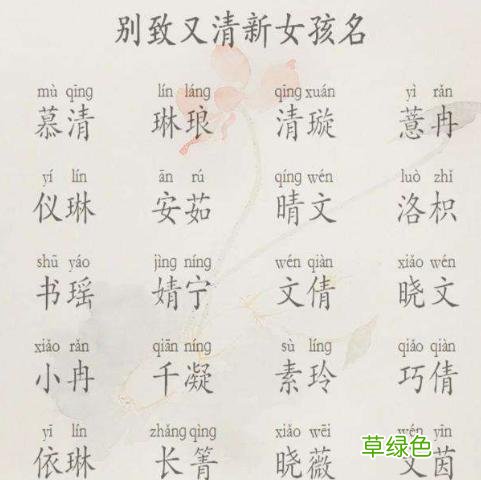 别致又清新女孩名
mù qīng lín láng qīng xuán yì rǎn
慕清 琳琅 清璇 薏冉
yí lín ān rú qíng wén luò zhǐ
仪琳 安茹 晴文 洛枳
shū yáo jìng níng wén qiàn xiǎo wén
书瑶 婧宁 文倩 晓文
xiǎo rǎn qiān níng sù líng qiǎo qiàn
小冉 千凝 素玲 巧倩
yī lín zhǎng qìng xiǎo wēi wén yīn
依琳 长箐 晓薇 文茵
草绿色